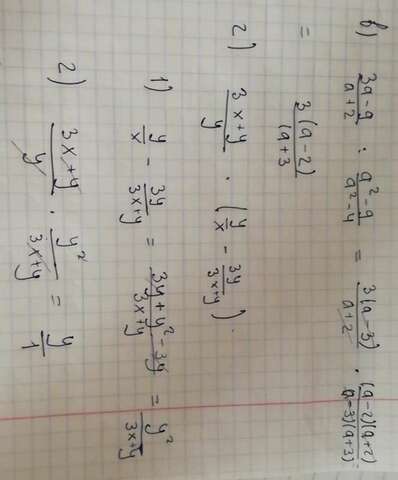 в) (3a-9)/(a+2) : (a²-9)/(a²-4) = 3(a-3)/(a+2) · (a-2)(a+2)/(a-3)(a+3) =
= 3(a-2)/(a+3
г) (3x+y)/y · (y/x - 3y/(3x+y)).
1) y/x - 3y/(3x+y) = (3y+y²-3y)/(3x+y) = y²/(3x+y)
2) (3x+y)/y · y²/(3x+y) = y/1